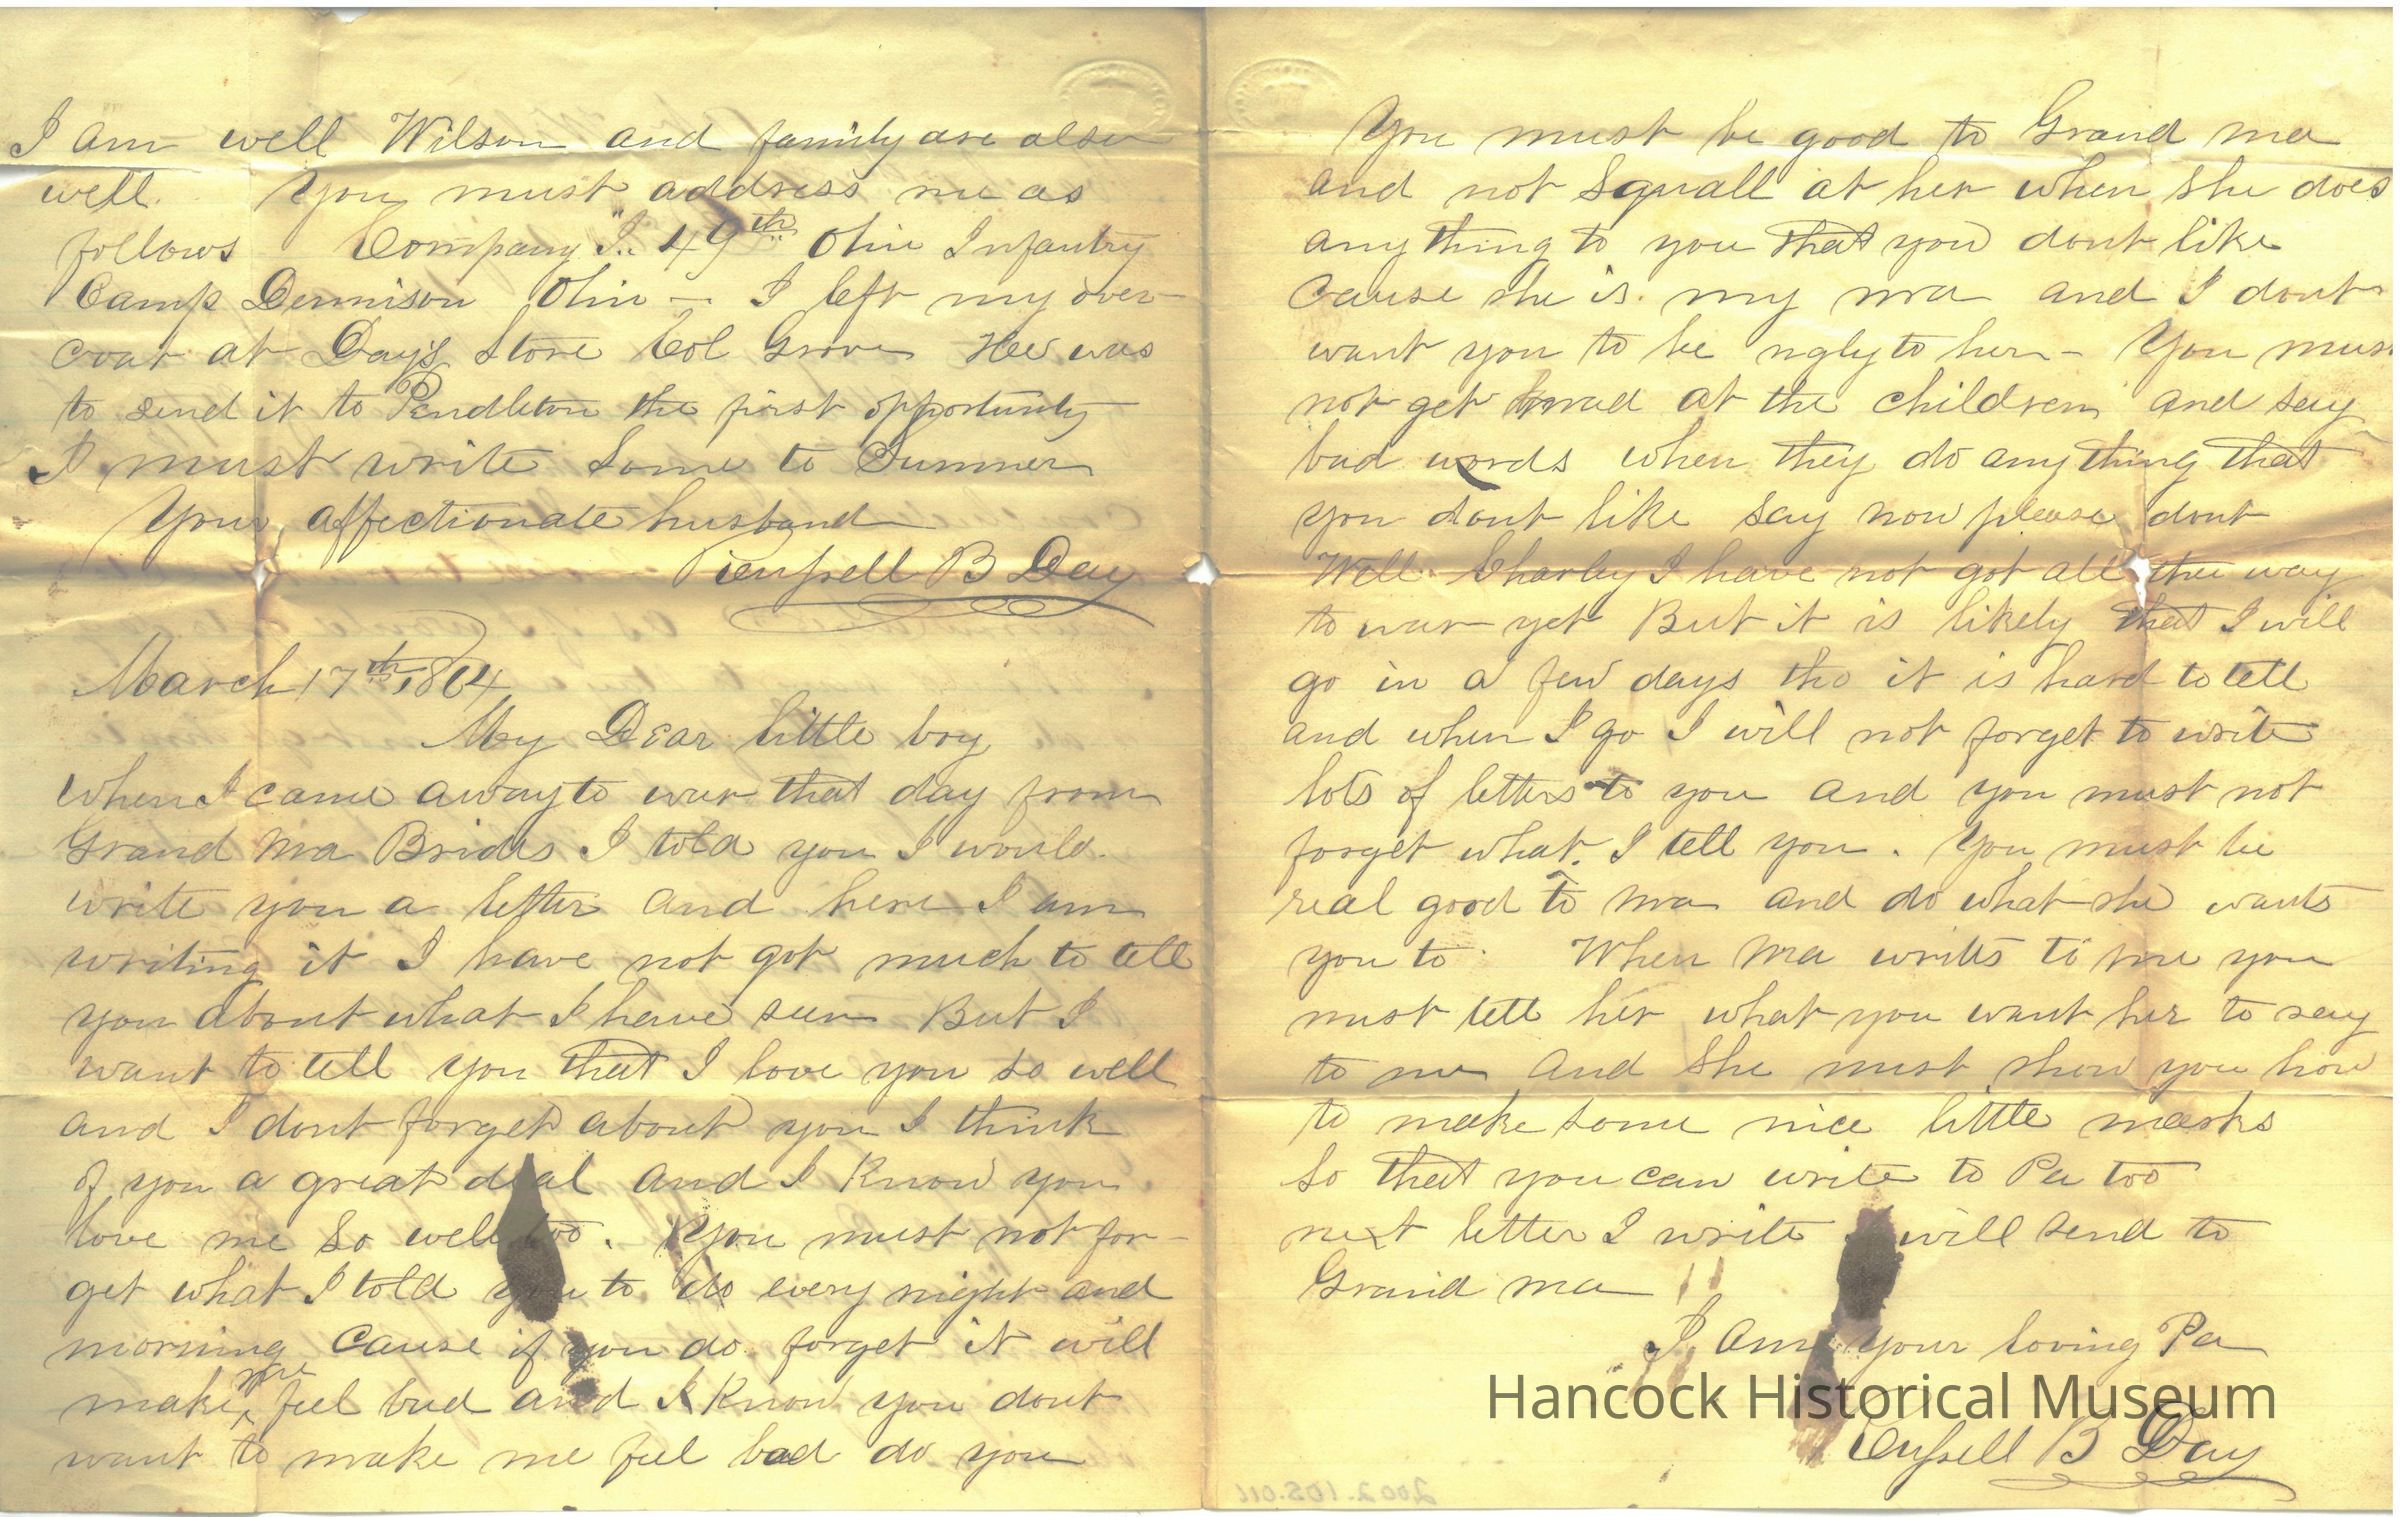 I am well Wilson and family are also
well. You must address me as
follows Company "I" 49th Ohio Infantry
Camp Dennison Ohio — I left my over-
coat at Day's Store Col Grove He was
to send it to Pendleton the first opportunity
I must write some to Sumner
Your affectionate husband
B Day
March 17th, 1864
My Dear little boy
when I came away to war that day from
Grand Ma Brides I told you I would
write you a letter and here I am
writing it I have not got much to tell
you about what I have seen But I
want to tell you that I love you so well
and I dont forget about you I think
of you a great deal and I know you
love me so well too. You must not for-
get what I told you to do every night and
morning Cause if you do forget it will
make me feel bad and I know you dont
want to make me feel bad do you
You must be good to Grand ma
and not Squall at her when she does
any thing to you that you dont like
Cause she is my ma and I dont
want you to be ugly to her - You must
not get mad at the children and say
bad words when they do any thing that
you dont like say now please dont
Well Charley I have not got all the way
to war yet But it is likely that I will
go in a few days tho it is hard to tell
and when I go I will not forget to write
lots of letters to you and you must not
forget what I tell you. You must be
real good to ma and do what she wants
you to. When Ma writes to me you
must tell her what you want her to say
to me and She must show you how
to make some nice little marks
So that you can write to Pa too
next letter I write will send to
Grand ma
I am your loving Pa
Hancock Historical Museum
B Day
2002.105.011